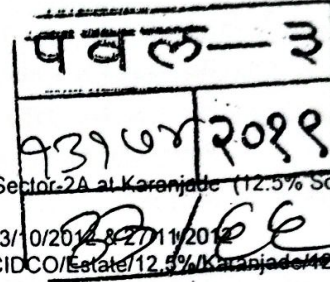 पवल—३
१३१७४ २०१९
Sector-2A at Karanjade (12.5% Sc
3/10/2012 & 27/11/2012
CIDCO/Estate/12.5%/Karanjade/12